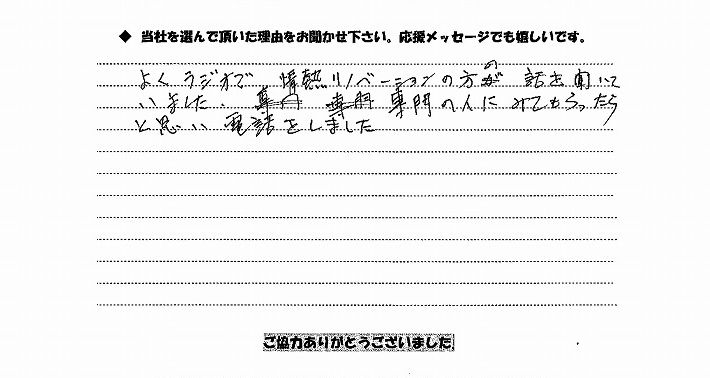 ◆ 当社を選んで頂いた理由をお聞かせ下さい。応援メッセージでも嬉しいです。
よくラジオで 情熱リノベーションの方の 話を聞いて
いました。専門の人にみてもらったら
と思い電話をしました
ご協力ありがとうございました